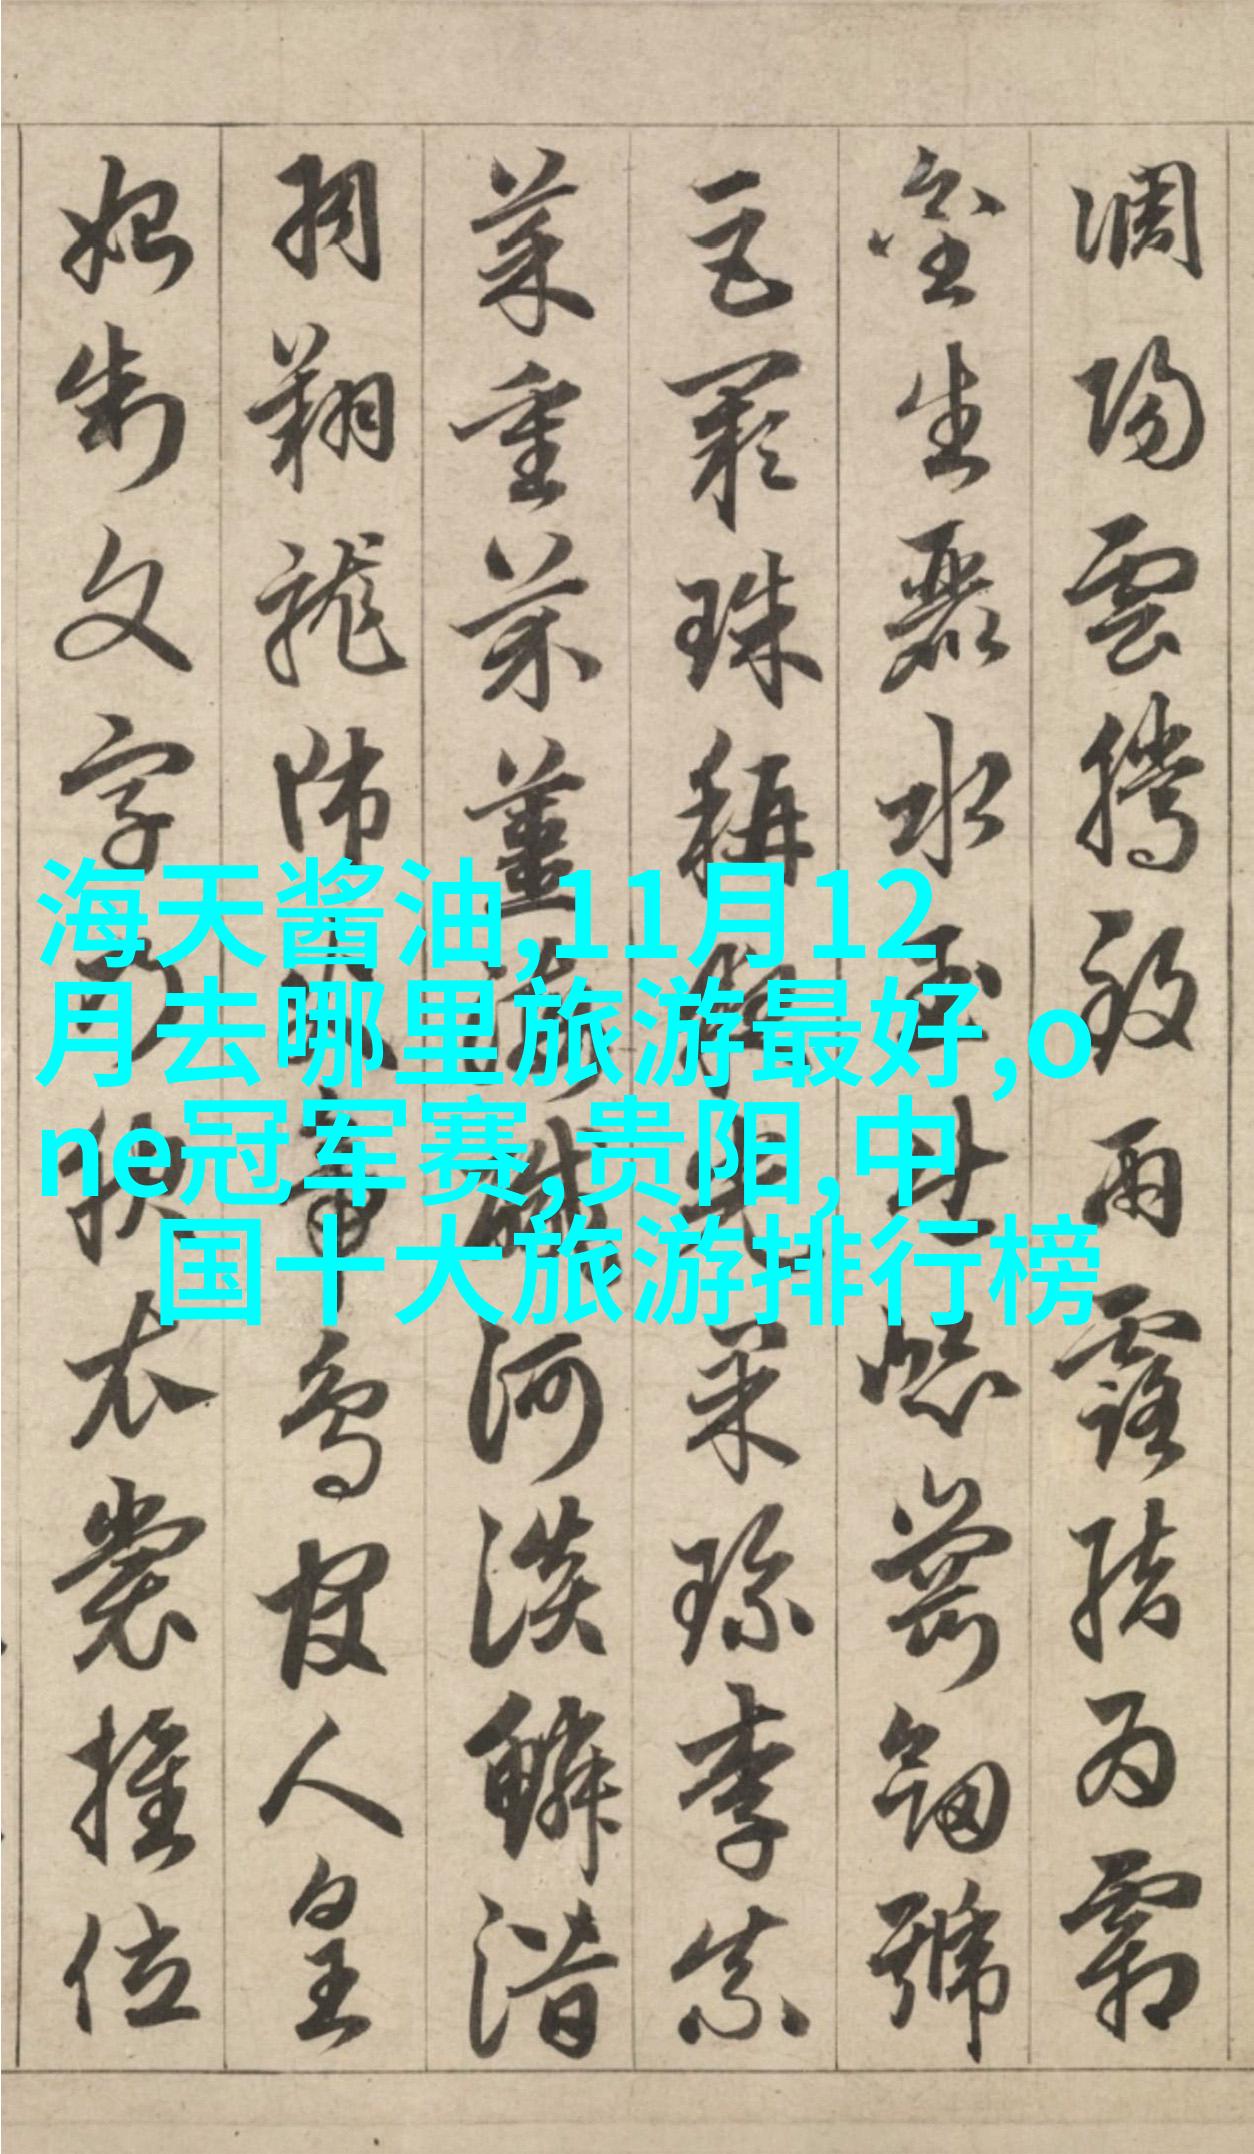 調陽雲騰致雨露結為霜
金生麗水玉出崑崗劒號
巨闕珠稱夜光菓珍李柰
菜重芥薑海鹹河淡鱗潛
羽翔龍師火帝鳥官人皇
始制文字乃服衣裳推位
海天酱油,11月12
月去哪里旅游最好,o
ne冠军赛,贵阳,中
国十大旅游排行榜